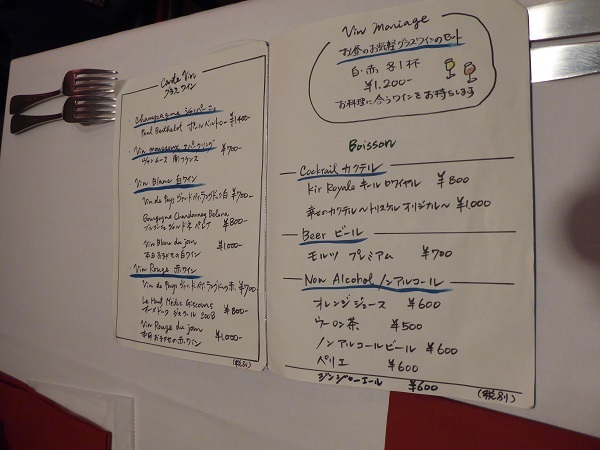 Carte Vin
グラスワイン
Champagne シャンパーニュ
Paul Berthelot ポール ベルトロー ¥1,400-
Vin mousseux スパークリング
ヴァンムース 南フランス ¥700-
Vin Blanc 白ワイン
Vin de Pays ヴァン・ド・ペイ・ラングドック 白 ¥700-
Bourgogne Chardonnay ¥800-
ブルゴーニュ シャルドネ
Vin Blanc du jour ¥1,000-
本日おすすめの白ワイン
Vin Rouge 赤ワイン
Vin de Pays ヴァン・ド・ペイ・ラングドック 赤 ¥700-
Le Haut Médoc Giscours ¥800-
オーメドック ジスクール 2008
Vin Rouge du jour ¥1,000-
本日おすすめの赤ワイン
(税別)
Vin Mariage
お昼のお気軽グラスワインのセット
白・赤 各1杯
¥1,200-
お料理に合うワインをお持ちします
Boisson
Cocktail カクテル
Kir Royale キール ロワイヤル ¥800
幸せのカクテル〜トリスケル オリジナル〜 ¥1,000
Beer ビール
モルツ プレミアム ¥700
Non Alcohol ノンアルコール
オレンジジュース ¥600
ウーロン茶 ¥500
ノンアルコールビール ¥600
ペリエ ¥600
ジンジャーエール ¥600
(税別)